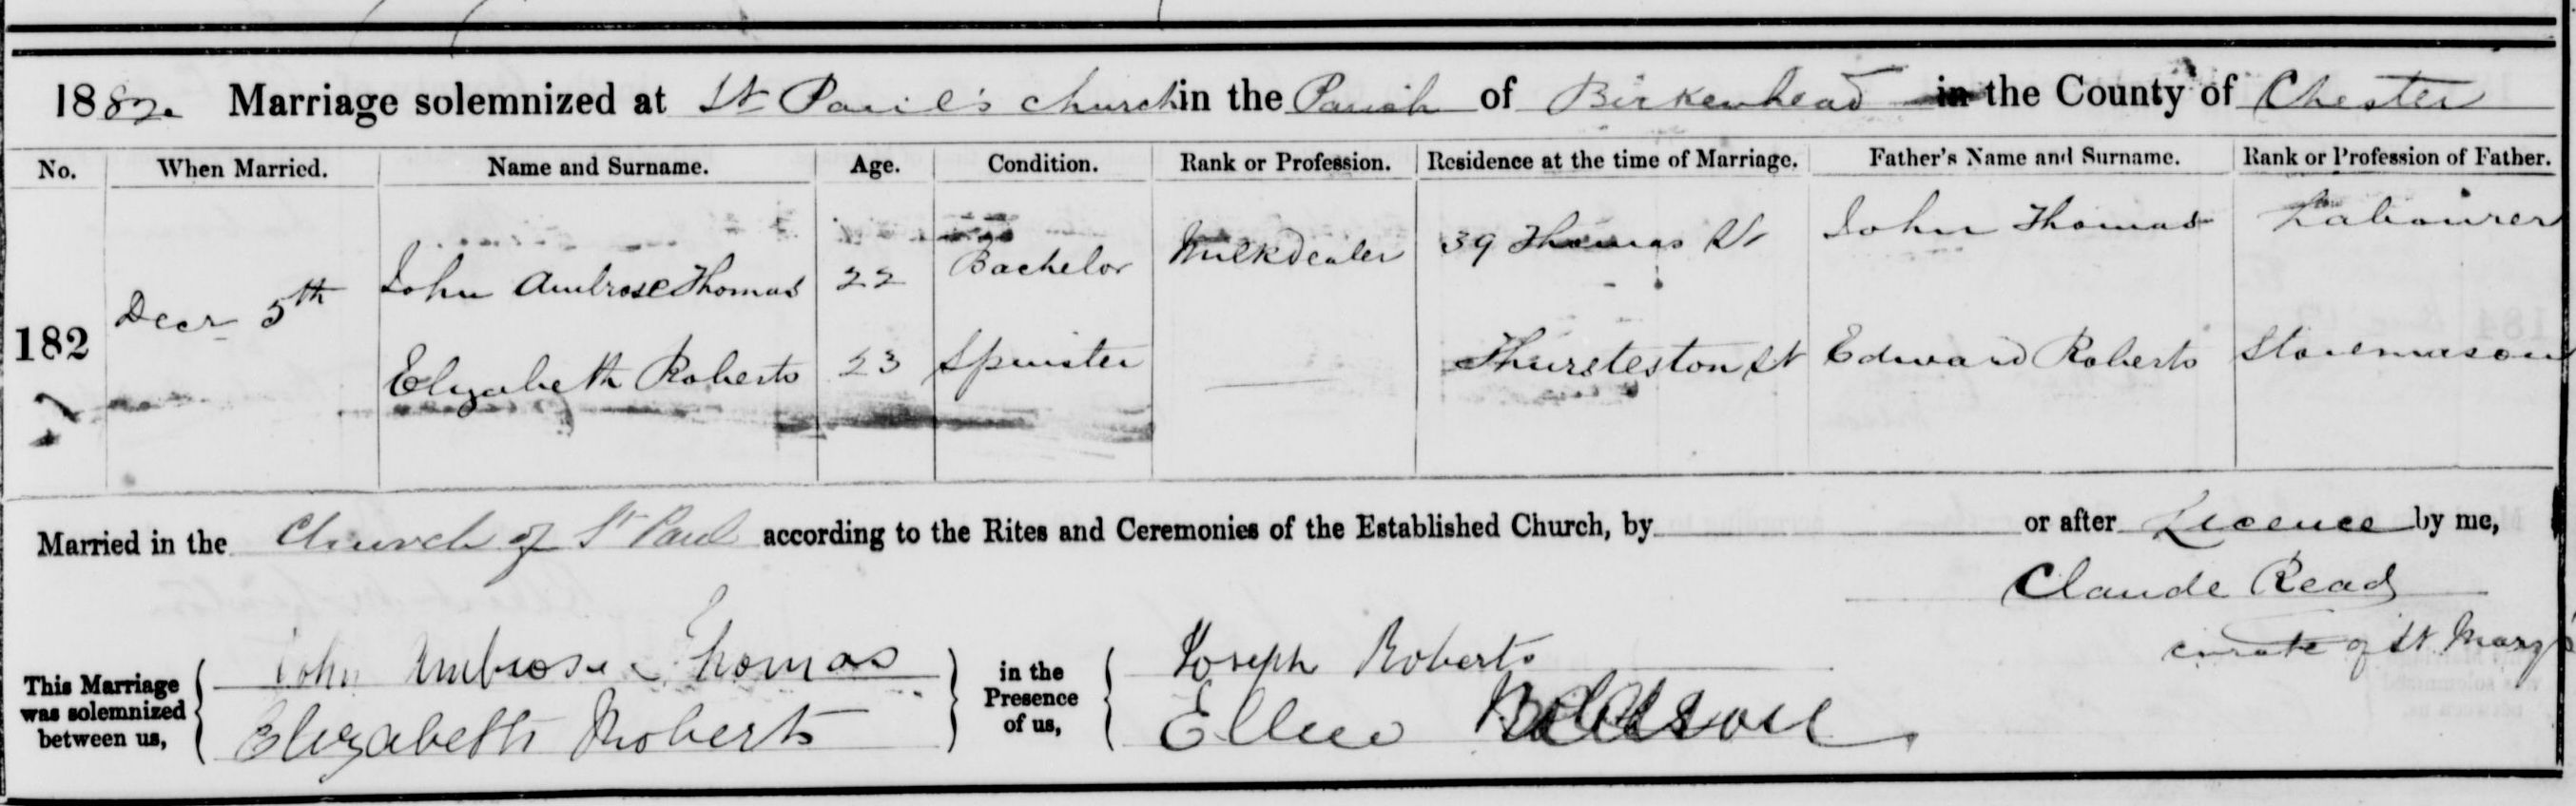 1882. Marriage solemnized at St Paul's church in the Parish of Birkenhead in the County of Chester
No. When Married. Name and Surname. Age. Condition. Rank or Profession. Residence at the time of Marriage. Father's Name and Surname. Rank or Profession of Father.
182 Decr 5th John Ambrose Thomas 22 Bachelor Milk Dealer 39 Thomas St John Thomas Labourer
Elizabeth Roberts 23 Spinster Thursteston St Edward Roberts Stonemason
Married in the Church of St Paul according to the Rites and Ceremonies of the Established Church, by or after Licence by me,
Claude Read
curate of St Mary's
This Marriage was solemnized between us, John Ambrose Thomas in the Presence of us, Joseph Roberts
Elizabeth Roberts Ellen